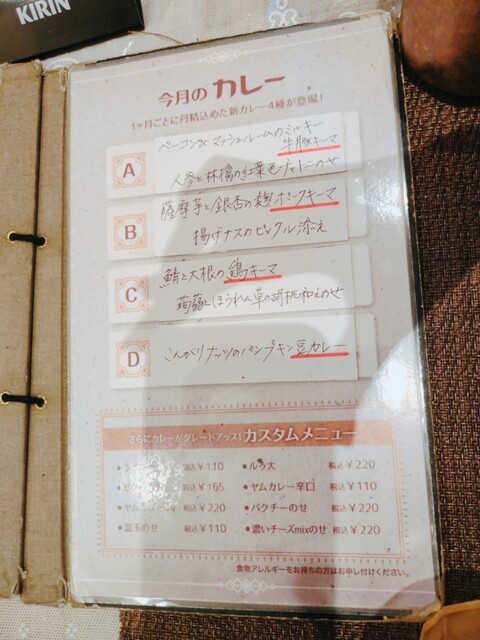 KIRIN
今月の カレー
1ヶ月ごとに丹精込めた新カレー4種が登場!
A
ベーコン&マッシュルームのミルキー
牛豚キーマ
人参と林檎の紅葉色チャトニのせ
B
薩摩芋と銀杏の麹ポークキーマ
揚げナスのピックル添え
C
鯖と大根の鶏キーマ
蒟蒻とほうれん草の胡桃和えのせ
D
こんがりナッツのパンプキン豆カレー
さらにカレーがグレードアップ! カスタムメニュー
税込¥110
●ルゥ大 税込¥220
税込¥165
●ヤムカレー辛口 税込¥110
税込¥220
●パクチーのせ 税込¥220
●温玉のせ 税込¥110
●濃いチーズmixのせ 税込¥220
食物アレルギーをお持ちの方はお申し付けください。